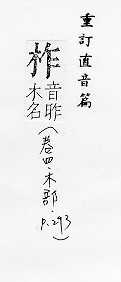 重訂直音篇
柞
音昨
木名
(卷四·木部·p.293)